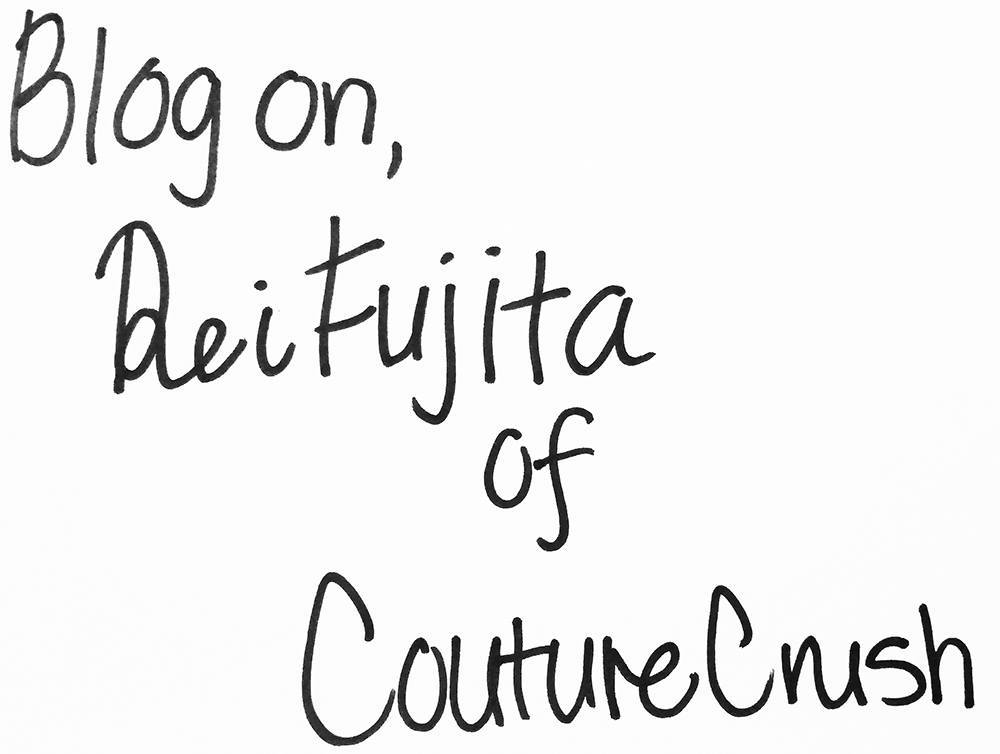 Blog on,
Rei Fujita
of
Couture Crush